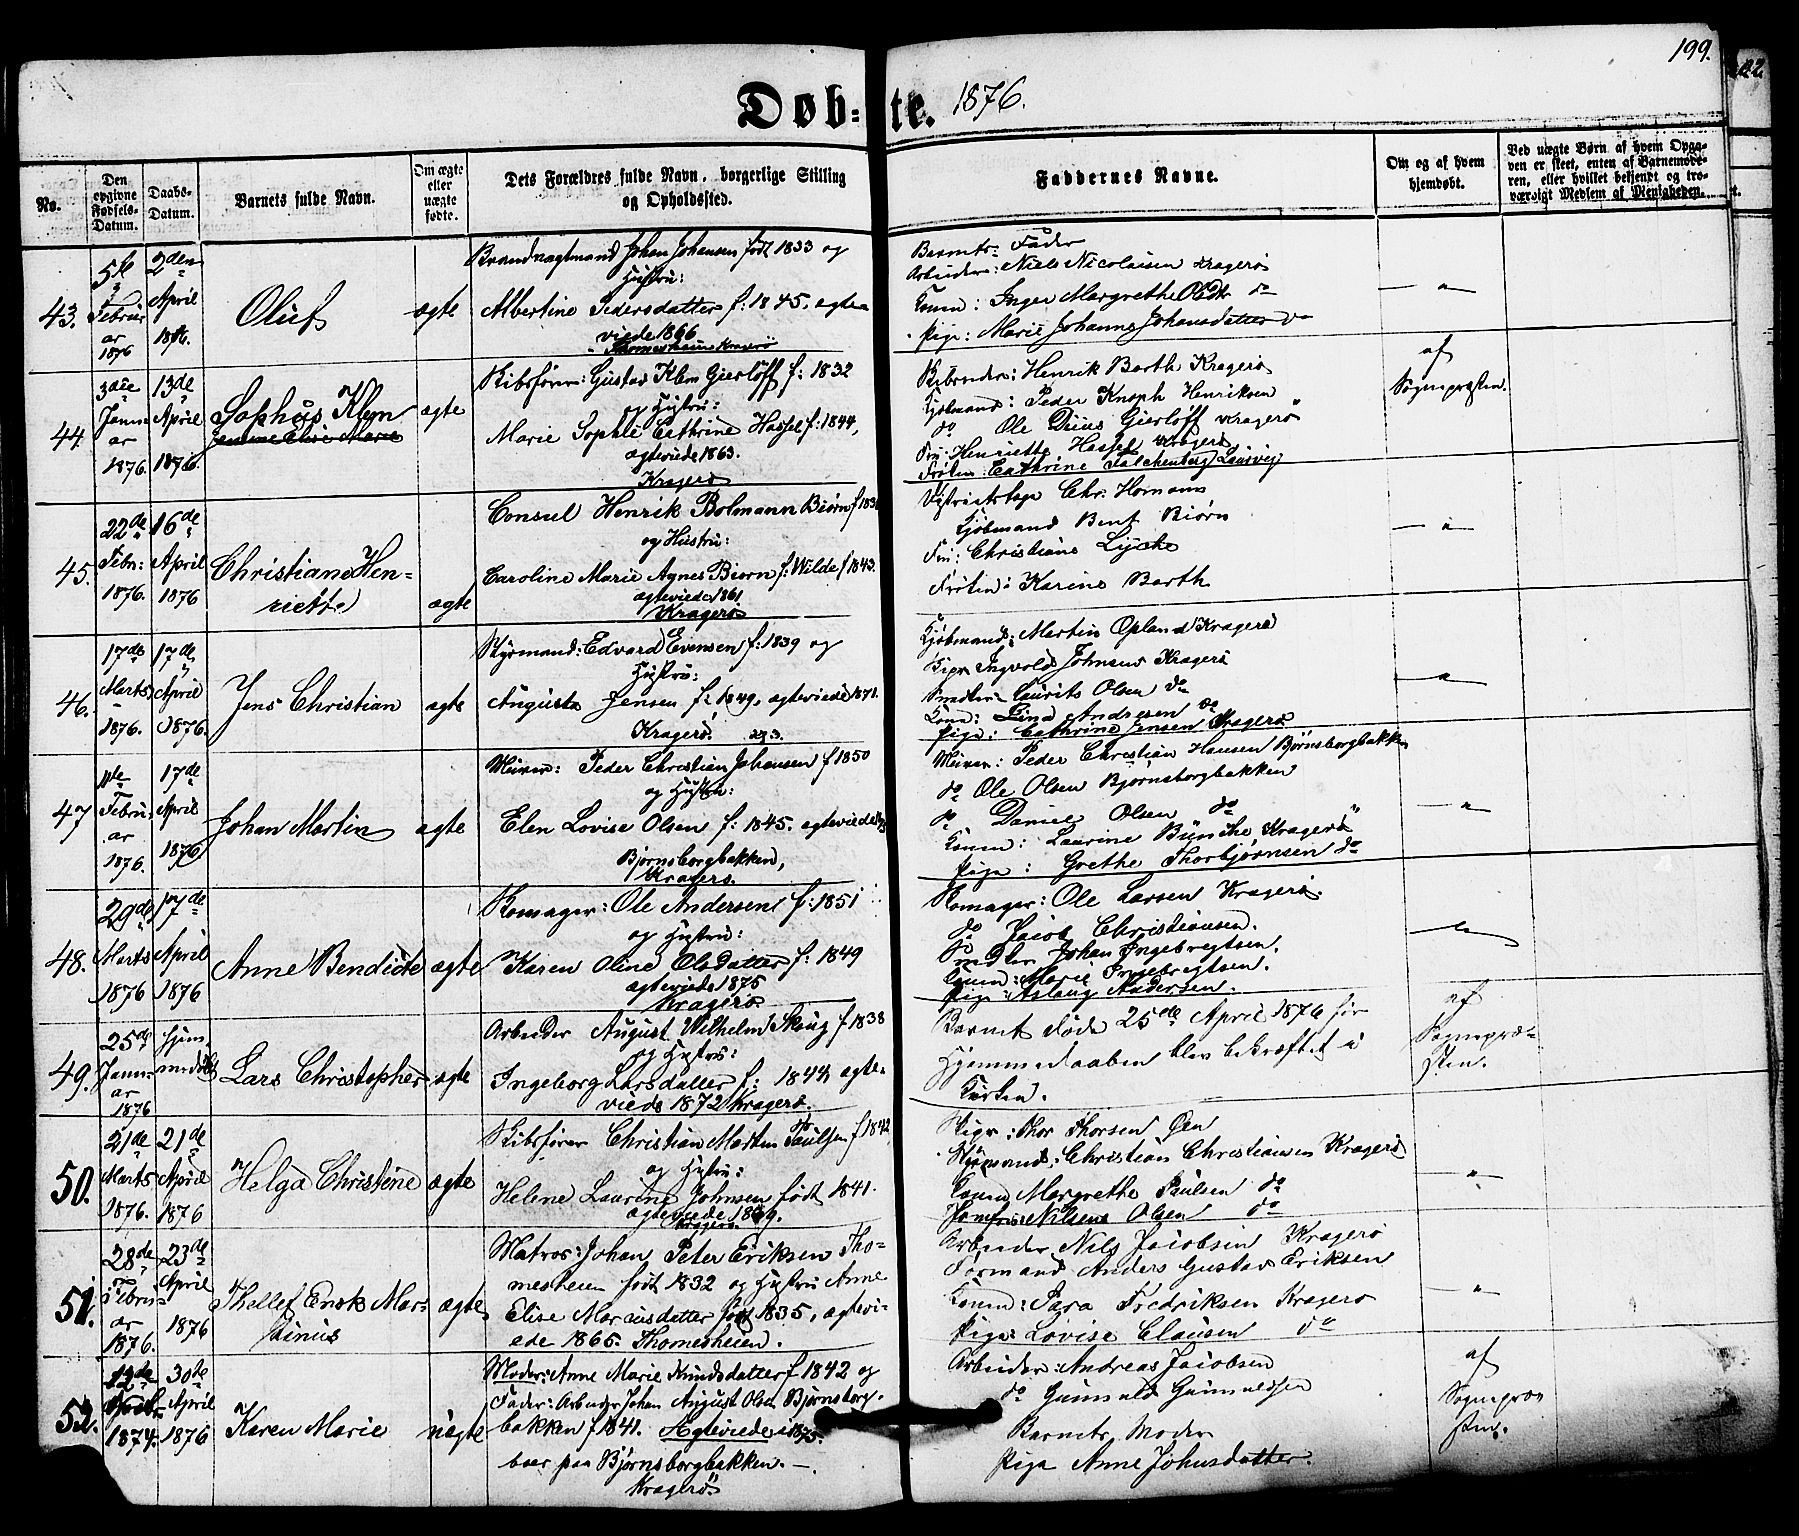 199.
Døb-te. 1876.
No.
Den opgivne Fødsels-Datum.
Daabs-Datum.
Barnets fulde Navn.
Om ægte eller uægte fødte.
Dets Forældres fulde Navn, borgerlige Stilling og Opholdssted.
Faddernes Navne.
Om og af hvem hjemdøbt.
Ved uægte Børn af hvem Opgaven er skeet, enten af Barnemoderen, eller hvilket bekjendt og troværdigt Medlem af Menigheden.
43.
5te Februar 1876
2den April 1876.
Oluf
ægte
Brandvagtmand Johan Johansen født 1833 og
Hustru:
Albertine Pedersdatter f: 1845. ægte
viede 1866
Thomesheien Kragerø
Barnets Fader
Arbeider: Niels Nicolaisen Kragerø
Konen: Inger Margrethe Olsdtr do
Pige: Marie Johanne Johansdatter do
44.
3die Januar 1876.
13de April 1876.
Sophus Klem
ægte
Skibsfører: Gustav Klem Gierløff f: 1832
og Hustru:
Marie Sophie Cathrine Hassel f: 1844,
ægteviede 1863.
Kragerø
Skibsreder: Henrik Barth Kragerø
Kjøbmand: Peder Knoph Henriksen
do Ole Dius Gierløff Kragerø
Fru: Henriette Hassel Kragerø
Frøken: Cathrine Falckenberg Laurvig
af
Sognepresten.
45.
22de Febr: 1876.
16de April 1876
Christiane Hen-
riette
ægte
Consul Henrik Bolmann Biørn f 183
og Hustru:
Caroline Marie Agnes Biørn f: Wilde f 1843.
ægteviede 1861
Kragerø
Distriktslæge Chr. Homann
Kjøbmand Bent Biørn
Fru: Christiane Lycke
Frøken: Karine Barth
46.
17de Marts 1876.
17de April 1876.
Jens Christian
ægte
Styrmand: Edvard Evensen f: 1839 og
Hustru:
Augusta Jensen f: 1849, ægteviede 1871.
Kragerø.
Kjøbmand: Martin Opland Kragerø
Skipr Ingvold Johnsen Kragerø
Snedker Laurits Olsen do
Kone: Lina Andresen do
Pige: Cathrine Jensen Kragerø
47
Februar 1876.
17de April 1876
Johan Martin
ægte
Murer: Peder Christian Johansen f 1850
og Hustru:
Elen Lovise Olsen f: 1845. ægteviede
Bjørnsborgbakken,
Kragerø.
Murer: Peder Christian Hansen Bjørnsborgbakken
do Ole Olsen Bjørnsborgbakken
do Daniel Olsen do
Konen: Laurine Bünche Kragerø
Pige: Grethe Thorbjørnsen do
48.
29de Marts 1876
17de April 1876
Anne Bendicte
ægte
Skomager: Ole Andersen f: 1851
og Hustru:
Karen Oline Olsdatter f: 1849
ægteviede 1875
Kragerø
Skomager: Ole Larsen Kragerø.
do Jacob Christiansen.
Snedker Johan Ingebregtsen.
Konen: Marie Ingebregtsen.
Pige: Aslaug Andersen.
49.
25de Januar 1876
hjem-
medøbt
Lars Christopher
ægte
Arbeider August Wilhelm Skoug f 1838
og Hustru:
Ingeborg Larsdatter f: 1844 ægte-
viede 1872 Kragerø.
Barnet døde 25de April 1876 før
Hjemmedaaben blev bekræftet i
Kirken.
af
Sognepræ-
sten.
50.
21de Marts 1876.
21de April 1876
Helga Christine
ægte
Skibsfører Christian Morten Paulsen f 1842
og Hustru:
Helene Laurine Johnsen født 1841.
ægteviede 1869.
Kragerø
Skipr: Thor Thorsen Øen
Styrmand: Christian Christiansen Kragerø
Konen Margrethe Paulsen do
Jomfru: Nilsene Olsen do
51.
28de Februar 1876.
23de April 1876
Thellef Enok Mar-
tinus
ægte
Matros: Johan Peter Eriksen Tho-
mesheien født 1832 og Hustru Anne
Elise Marcusdatter født 1835, ægtevi-
ede 1865. Thomesheien.
Arbeider Nils Jacobsen Kragerø
Formand Anders Gustav Eriksen
Konen: Sara Fredriksen Kragerø
Pige: Lovise Clausen do
52.
12de 1874.
30te April 1876
Karen Marie
uægte
Moder: Anne Marie Knudsdatter f 1842 og
Fader: Arbeider Johan August Olsen Bjørnsborg-
bakken f 1841. Ægteviede 1875.
boer paa Bjørnsborgbakken.
Kragerø.
Arbeider: Andreas Jacobsen
do Gunuld Gunuldsen
Barnets Moder
Pige Anne Johnsdatter.
af
Sognepræ-
sten.